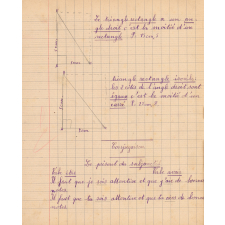 Le triangle rectangle a un an-
gle droit c'est la moitié d'un
rectangle
triangle rectangle isocèle
les 2 côtés de l'angle droit sont
égaux c'est la moitié d'un
carré
Conjugaison
Le présent du subjonctif
Verbe être Verbe avoir
Il faut que je sois attentive et que j'aie de bonnes
notes.
Il faut que tu sois attentive et que tu aies de bonnes
notes.